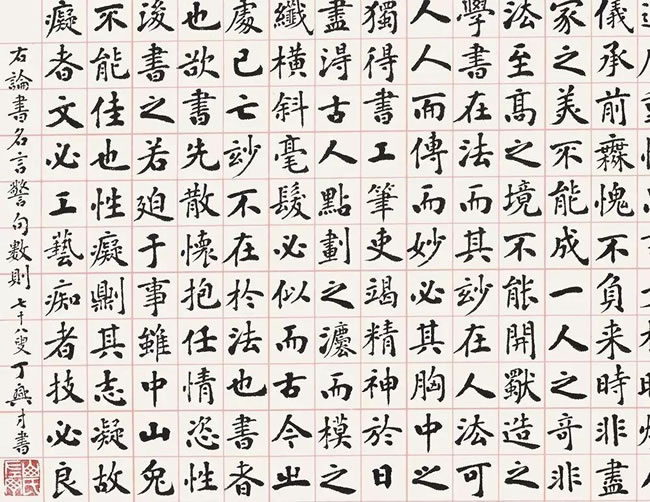 儀承前愧不負來時非盡
家之美不能成一人之奇非
法至高之境不能開造之
學書在法而其妙在人法可
人人而傳而妙必其胸中之
獨得書工筆吏竭精神於日
盡淂古人點劃之灋而模之
纖橫斜毫髮必似而古今之
處已亡妙不在於法也書者
也欲書先散懷抱任情恣性
後書之若迫于事雖中山兔
不能佳也性癡則其志凝故
癡者文必工藝痴者技必良
右論書名言警句數則七十八叟丁才書